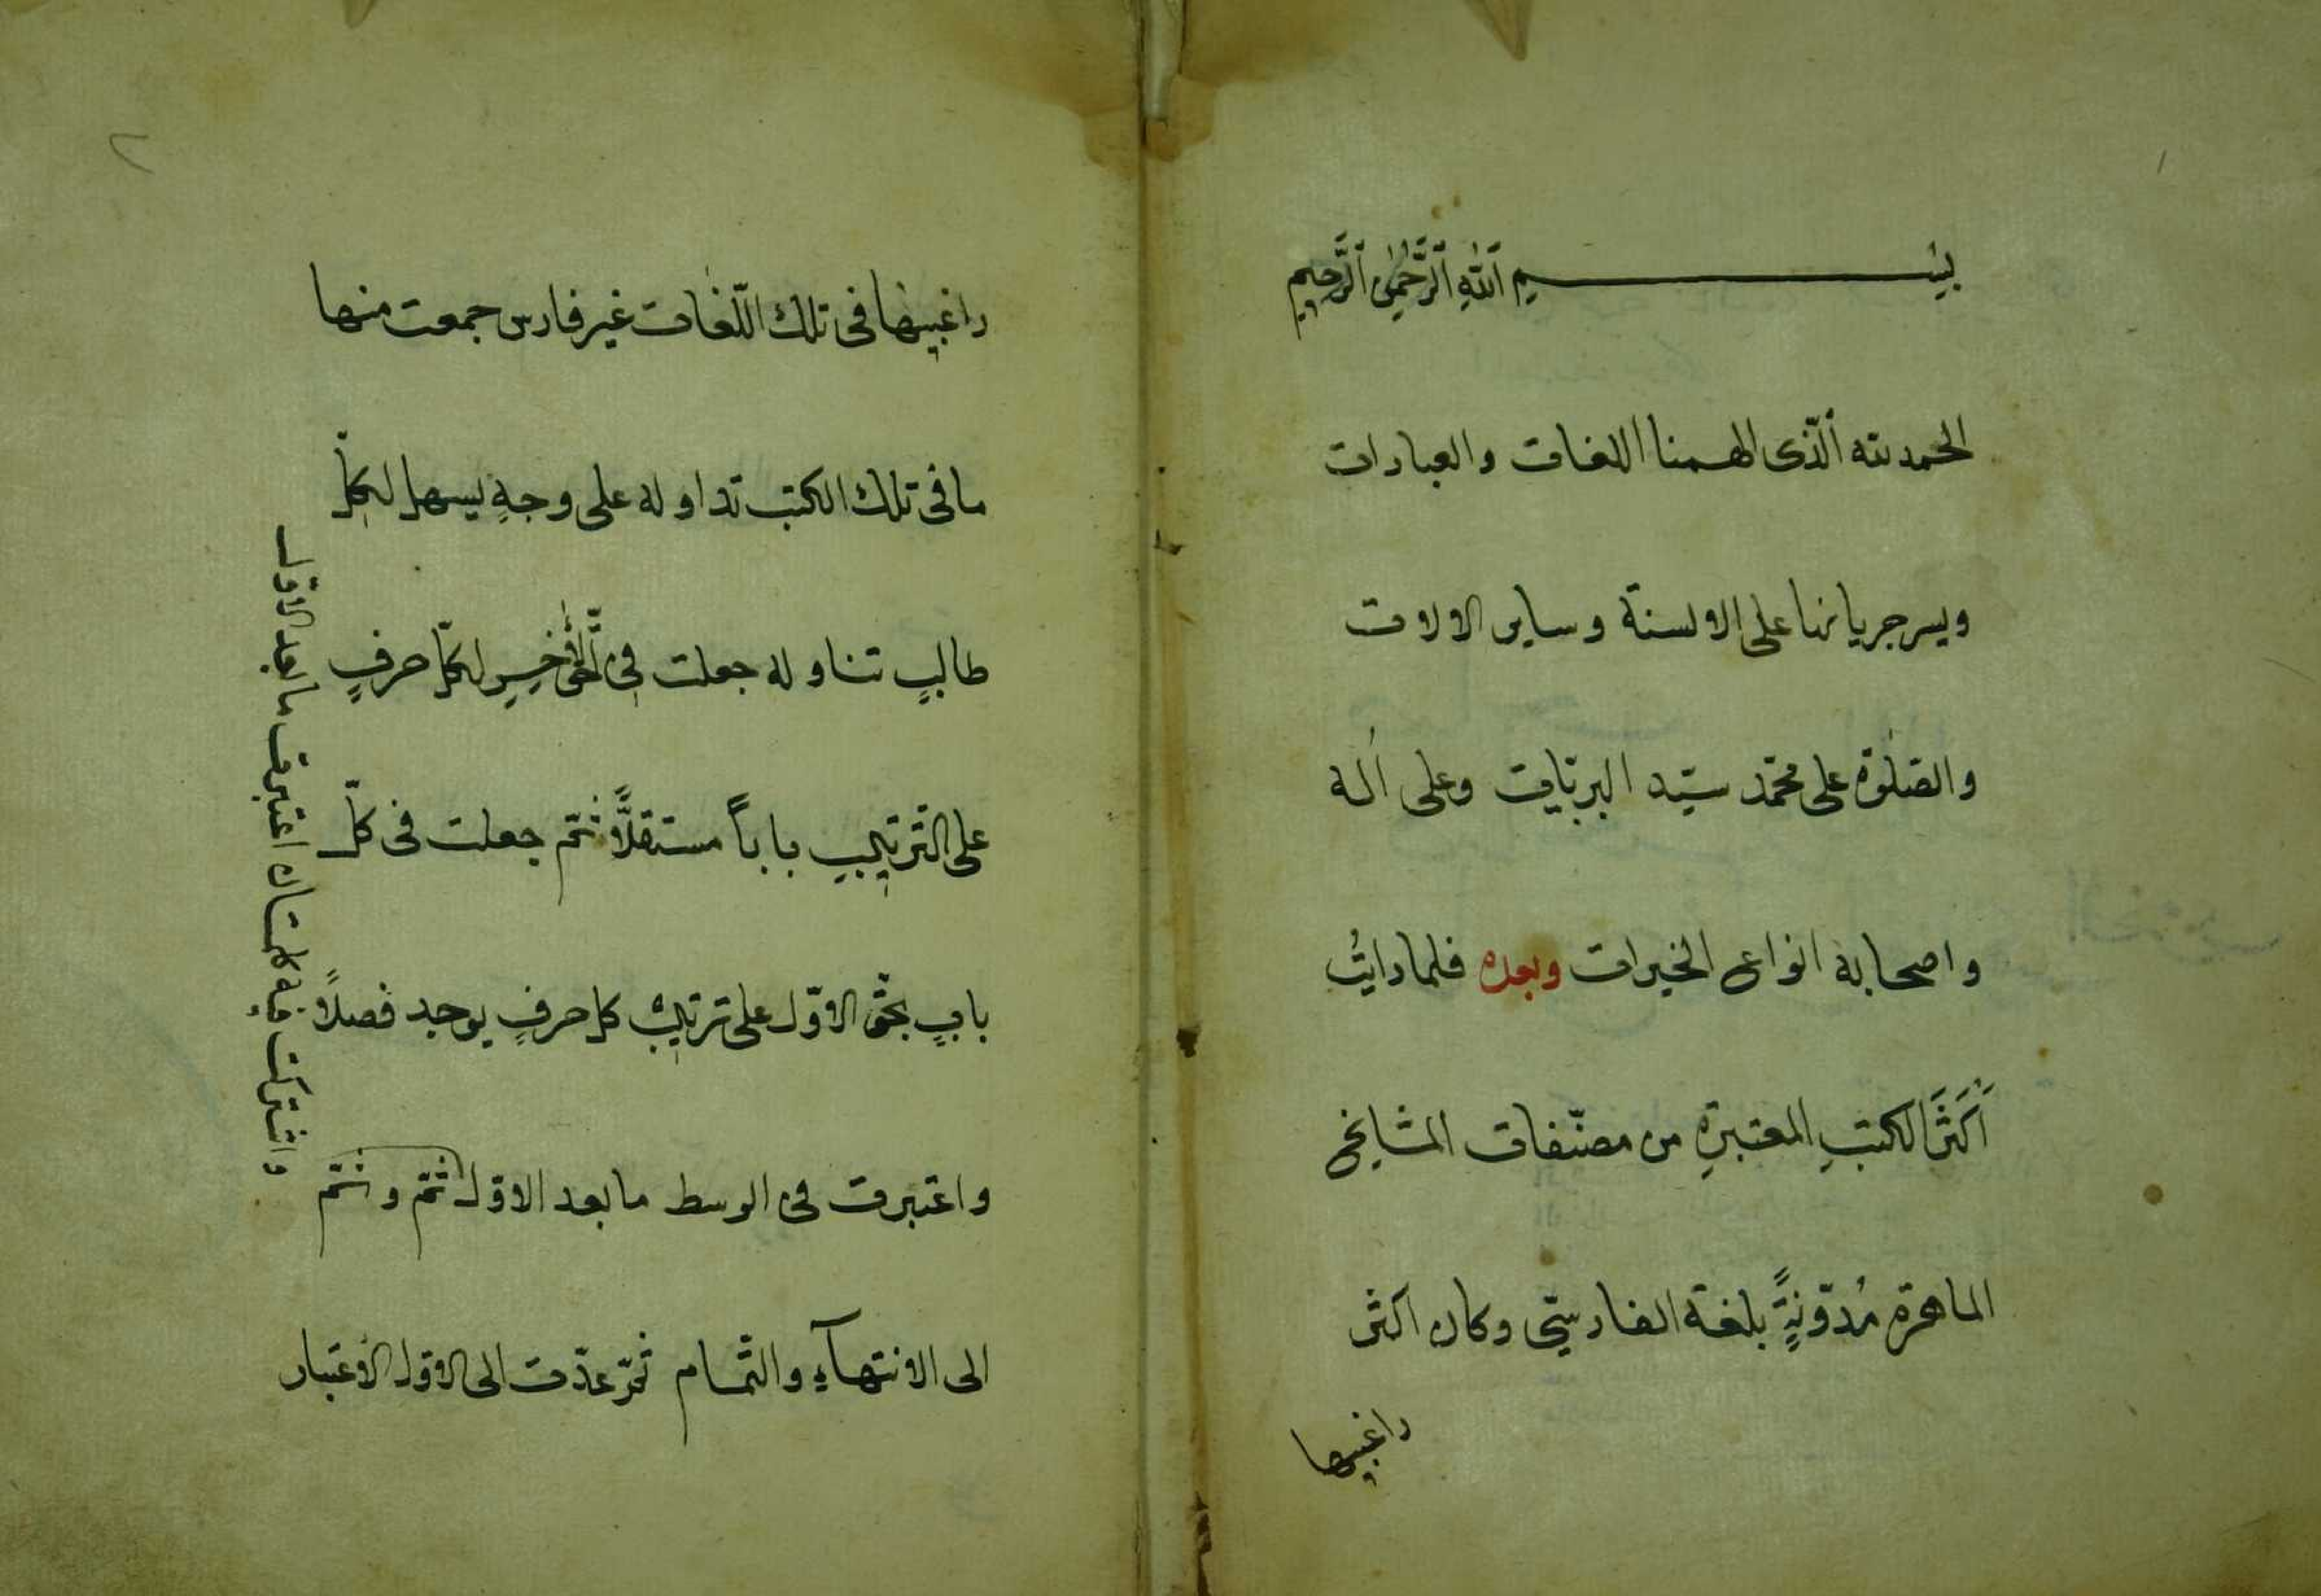 ١
بِسْــــــمِ اَللّٰهِ اَلرَّحْمٰنِ اَلرَّحِيمِ
الحمد لله اَلّذى الهمنا اللغات والعبارات
ويسر جريانها على الالسنة وساير الالات
والصّلٰوة على محمّد سيّد البريّات وعلى اٰله
واصحابه انواع الخيرات وبعده فلما رايتُ
اَكثَرَ الكتبِ المعتبرةِ من مصنّفات المشايخ
الماهرة مُدوّنةٍ بلغة الفارسىّ وكان اكثر
راغبيها
٢
راغبيها فى تلك اللّغات غير فارس جمعت منها
ما فى تلك الكتب تداوله على وجهٍ يسهل لكلّ
طالبٍ تناوله جعلت فى الاخير لكلّ حرفٍ
على التّرتيبِ باباً مستقلاًّ ثمّ جعلت فى كلّ
بابٍ بحقّ الاوّل على ترتيب كل حرفٍ يوجد فصلاً
واعتبرت فى الوسط ما بعد الاوّل ثمّ وثمّ
الى الانتهآءِ والتّمام ثمّ عدّت الى الاوّل الاعتبار
واشتركت فيه كلمتان اعتبرت ما بعد الاوّل